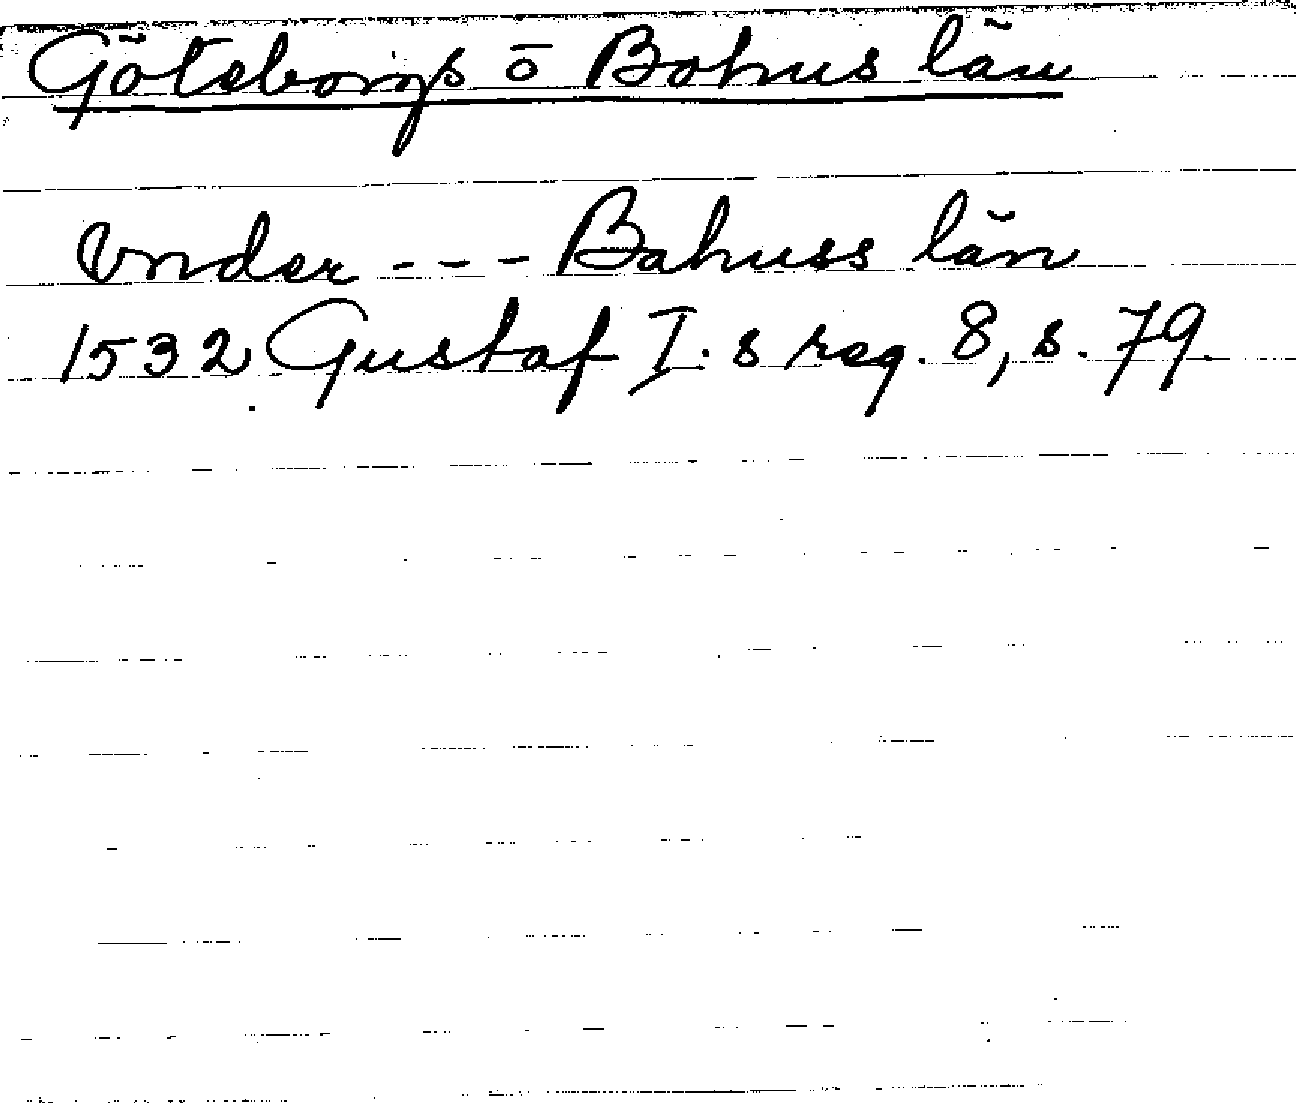 Göteborgs o Bohus län
Vnder --- Bahuss län
1532 Gustaf I.s reg. 8, s. 79.